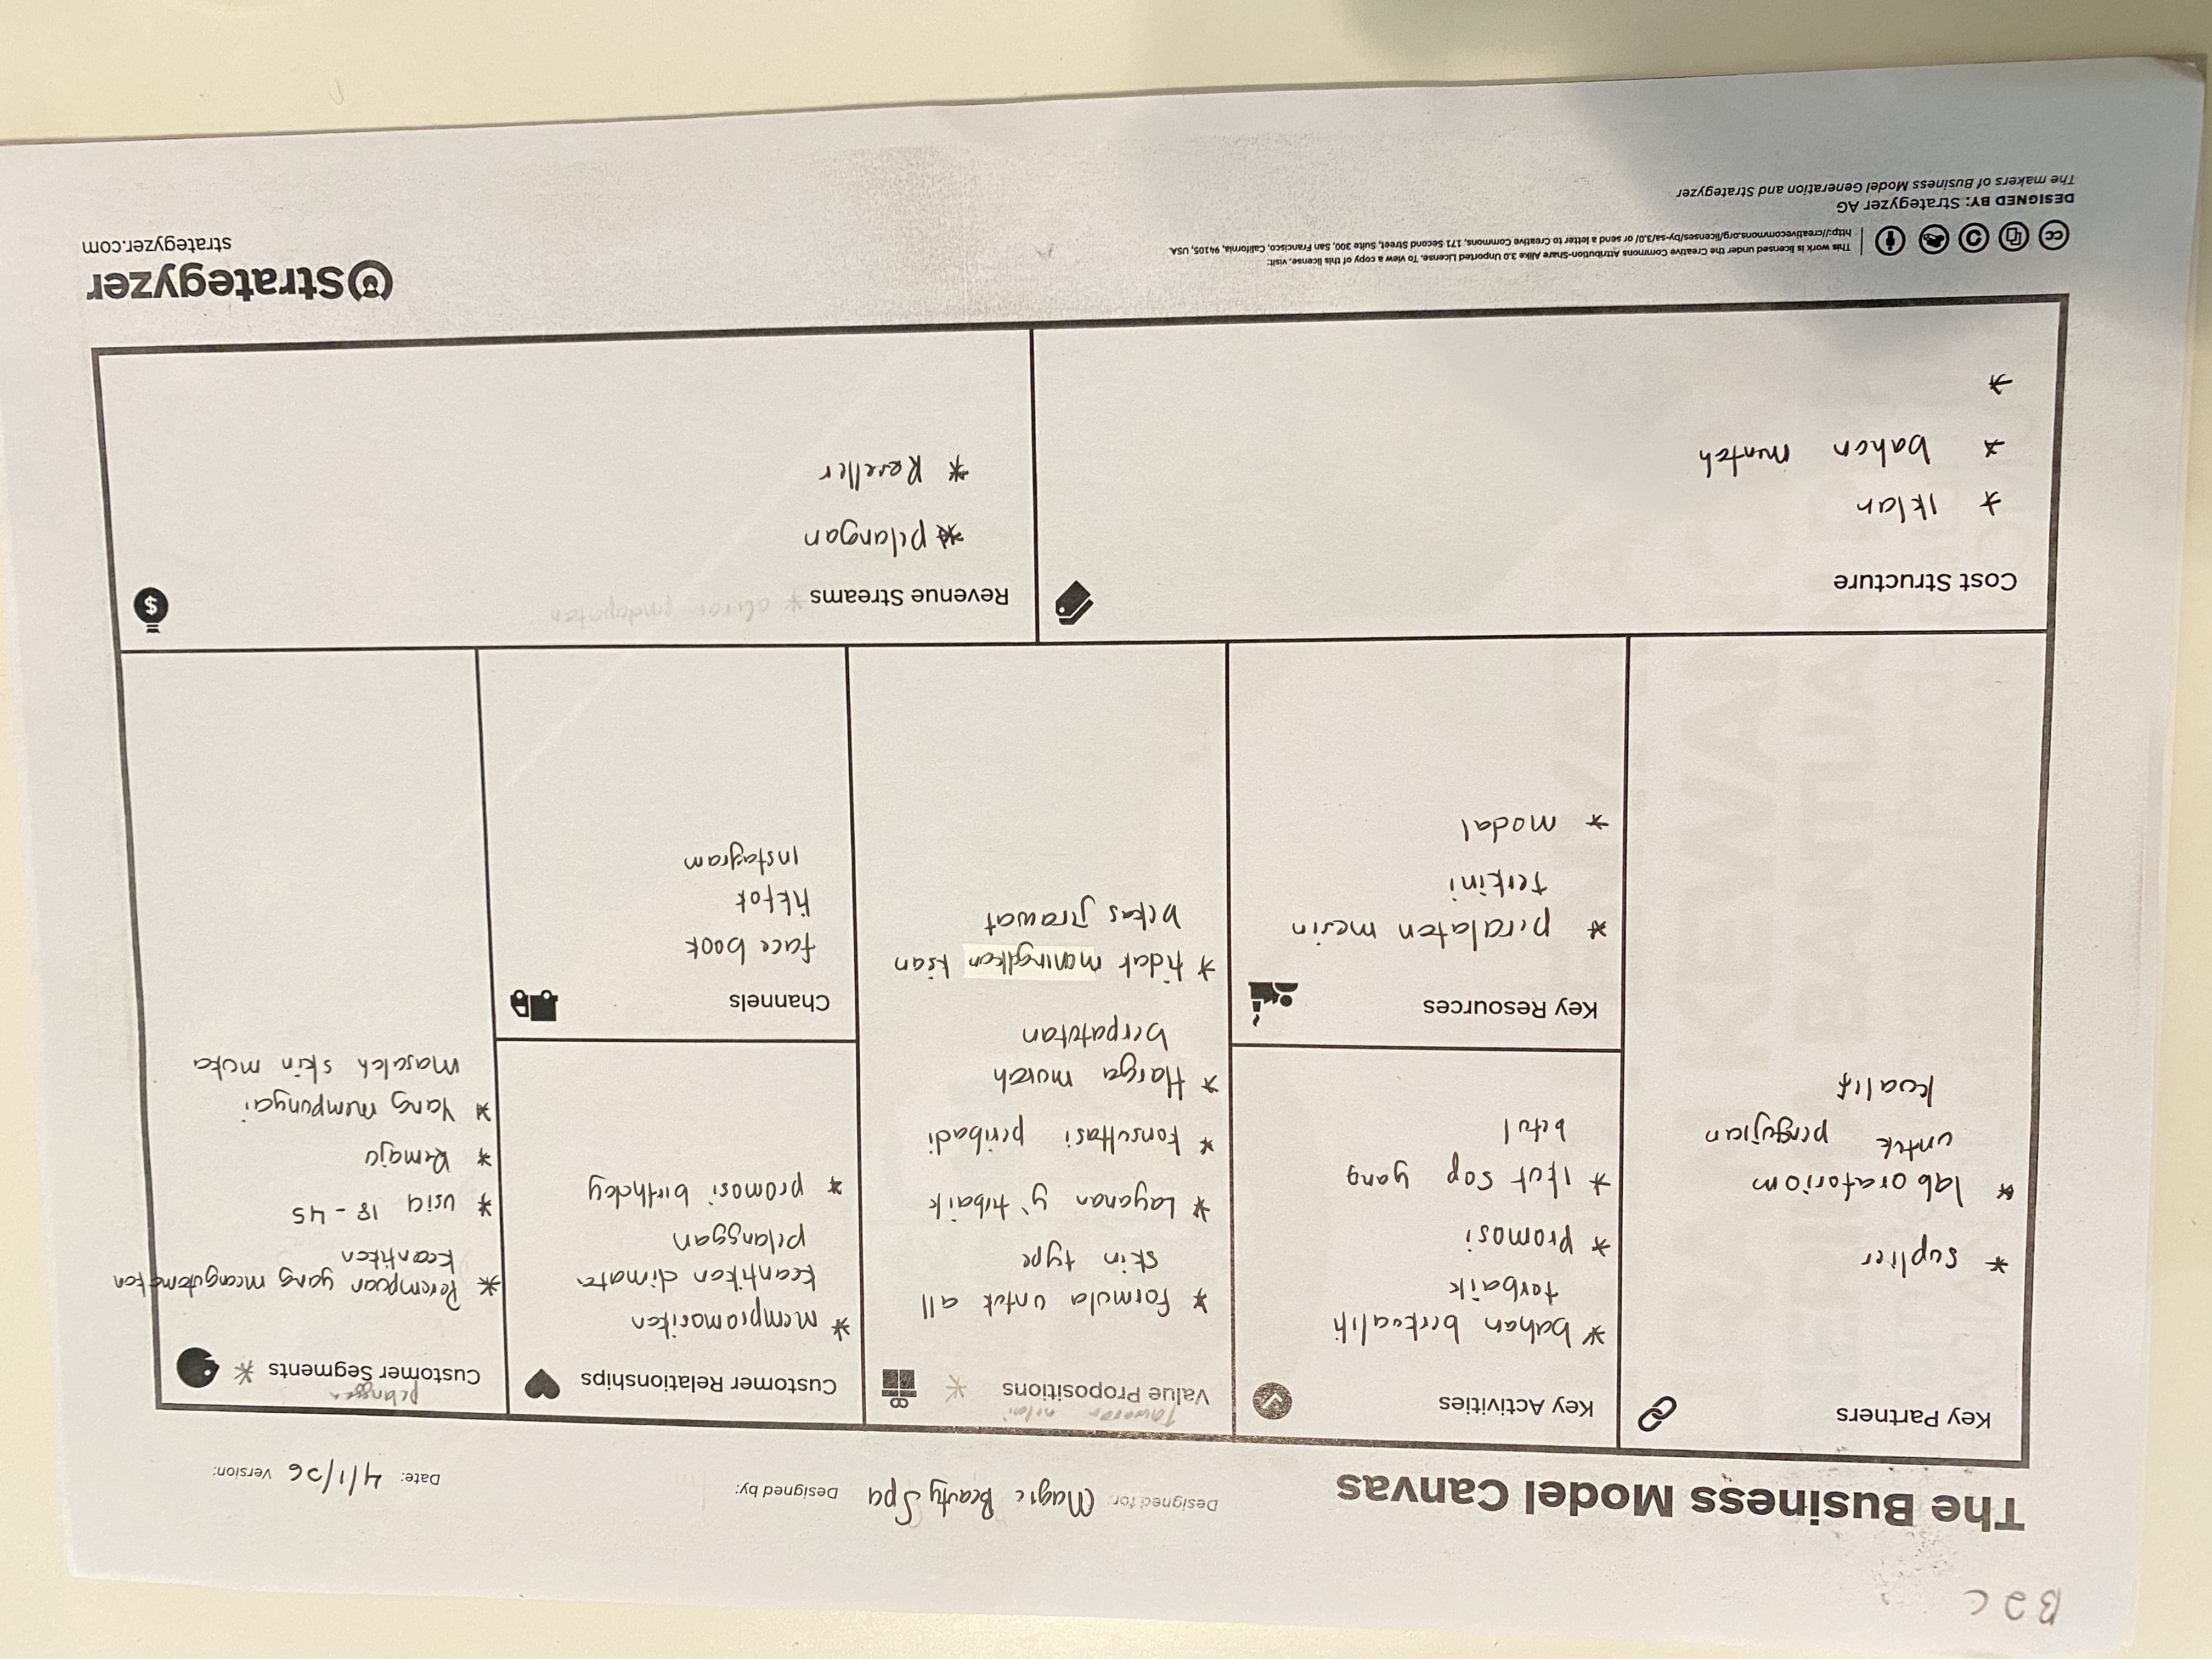 B2C
The Business Model Canvas
Designed for: Magic Beauty Spa
Designed by:
Date: 4/1/26
Version:
Key Partners
* Suplier
* laboratoriom
untuk pengujian
kualif
Key Activities
* bahan berkualiti
terbaik
* Promosi
* Ikut Sop yang
betul
Key Resources
* peralatan mesin
terkini
* modal
Value Propositions *
Tawaran nilai
* Formula untuk all
skin type
* Layanan y' tebaik
* Konsultasi peribadi
* Harga murah
berpatutan
* tidak maningalkan ksan
bekas jrawat
Customer Relationships
* mempromosikan
kcantikan dimata
pelanggan
* promosi birthday
Channels
face book
tiktok
Instagram
Customer Segments *
pelanggan
* Perempuan yang meangutamakan
kcantikan
* usia 18 - 45
* Remaja
* Yang mempunyai
masalah skin muka
Cost Structure
* Iklan
* bahan mentah
*
Revenue Streams * aliran pndapatan
* pelangan
* Reseller
This work is licensed under the Creative Commons Attribution-Share Alike 3.0 Unported License. To view a copy of this license, visit:
http://creativecommons.org/licenses/by-sa/3.0/ or send a letter to Creative Commons, 171 Second Street, Suite 300, San Francisco, California, 94105, USA.
DESIGNED BY: Strategyzer AG
The makers of Business Model Generation and Strategyzer
Strategyzer
strategyzer.com